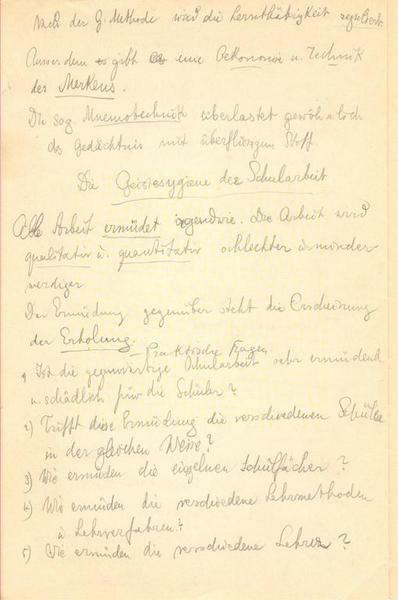 Nach der G. Methode wird die Lernthätigkeit
Ausserdem es gibt eine Oekonomie u. Technik
des Merkens.
Die sog. Mnemotechnik überlastet doch
das Gedächtnis mit überflüssigem Stoff.
Die der Schularbeit
Alle Arbeit ermüdet irgendwie. Die Arbeit wird
qualitativ u. quantitativ schlechter u. minder
werdiger
Der Ermüdung gegenüber steht die Erscheinung
der Erholung. – praktische Fragen.
1) Ist die gegenwärtige Schularbeit sehr ermüdend
u. schädlich für die Schüler?
2) Trifft diese Ermüdung die verschiedenen Schüler
in der gleichen Weise?
3) Wie ermüden die einzelnen Schulfächer?
4) Wie ermüden die verschiedene Lehrmethoden
u. Lehrverfahren?
5) Wie ermüden die verschiedene Lehrer?